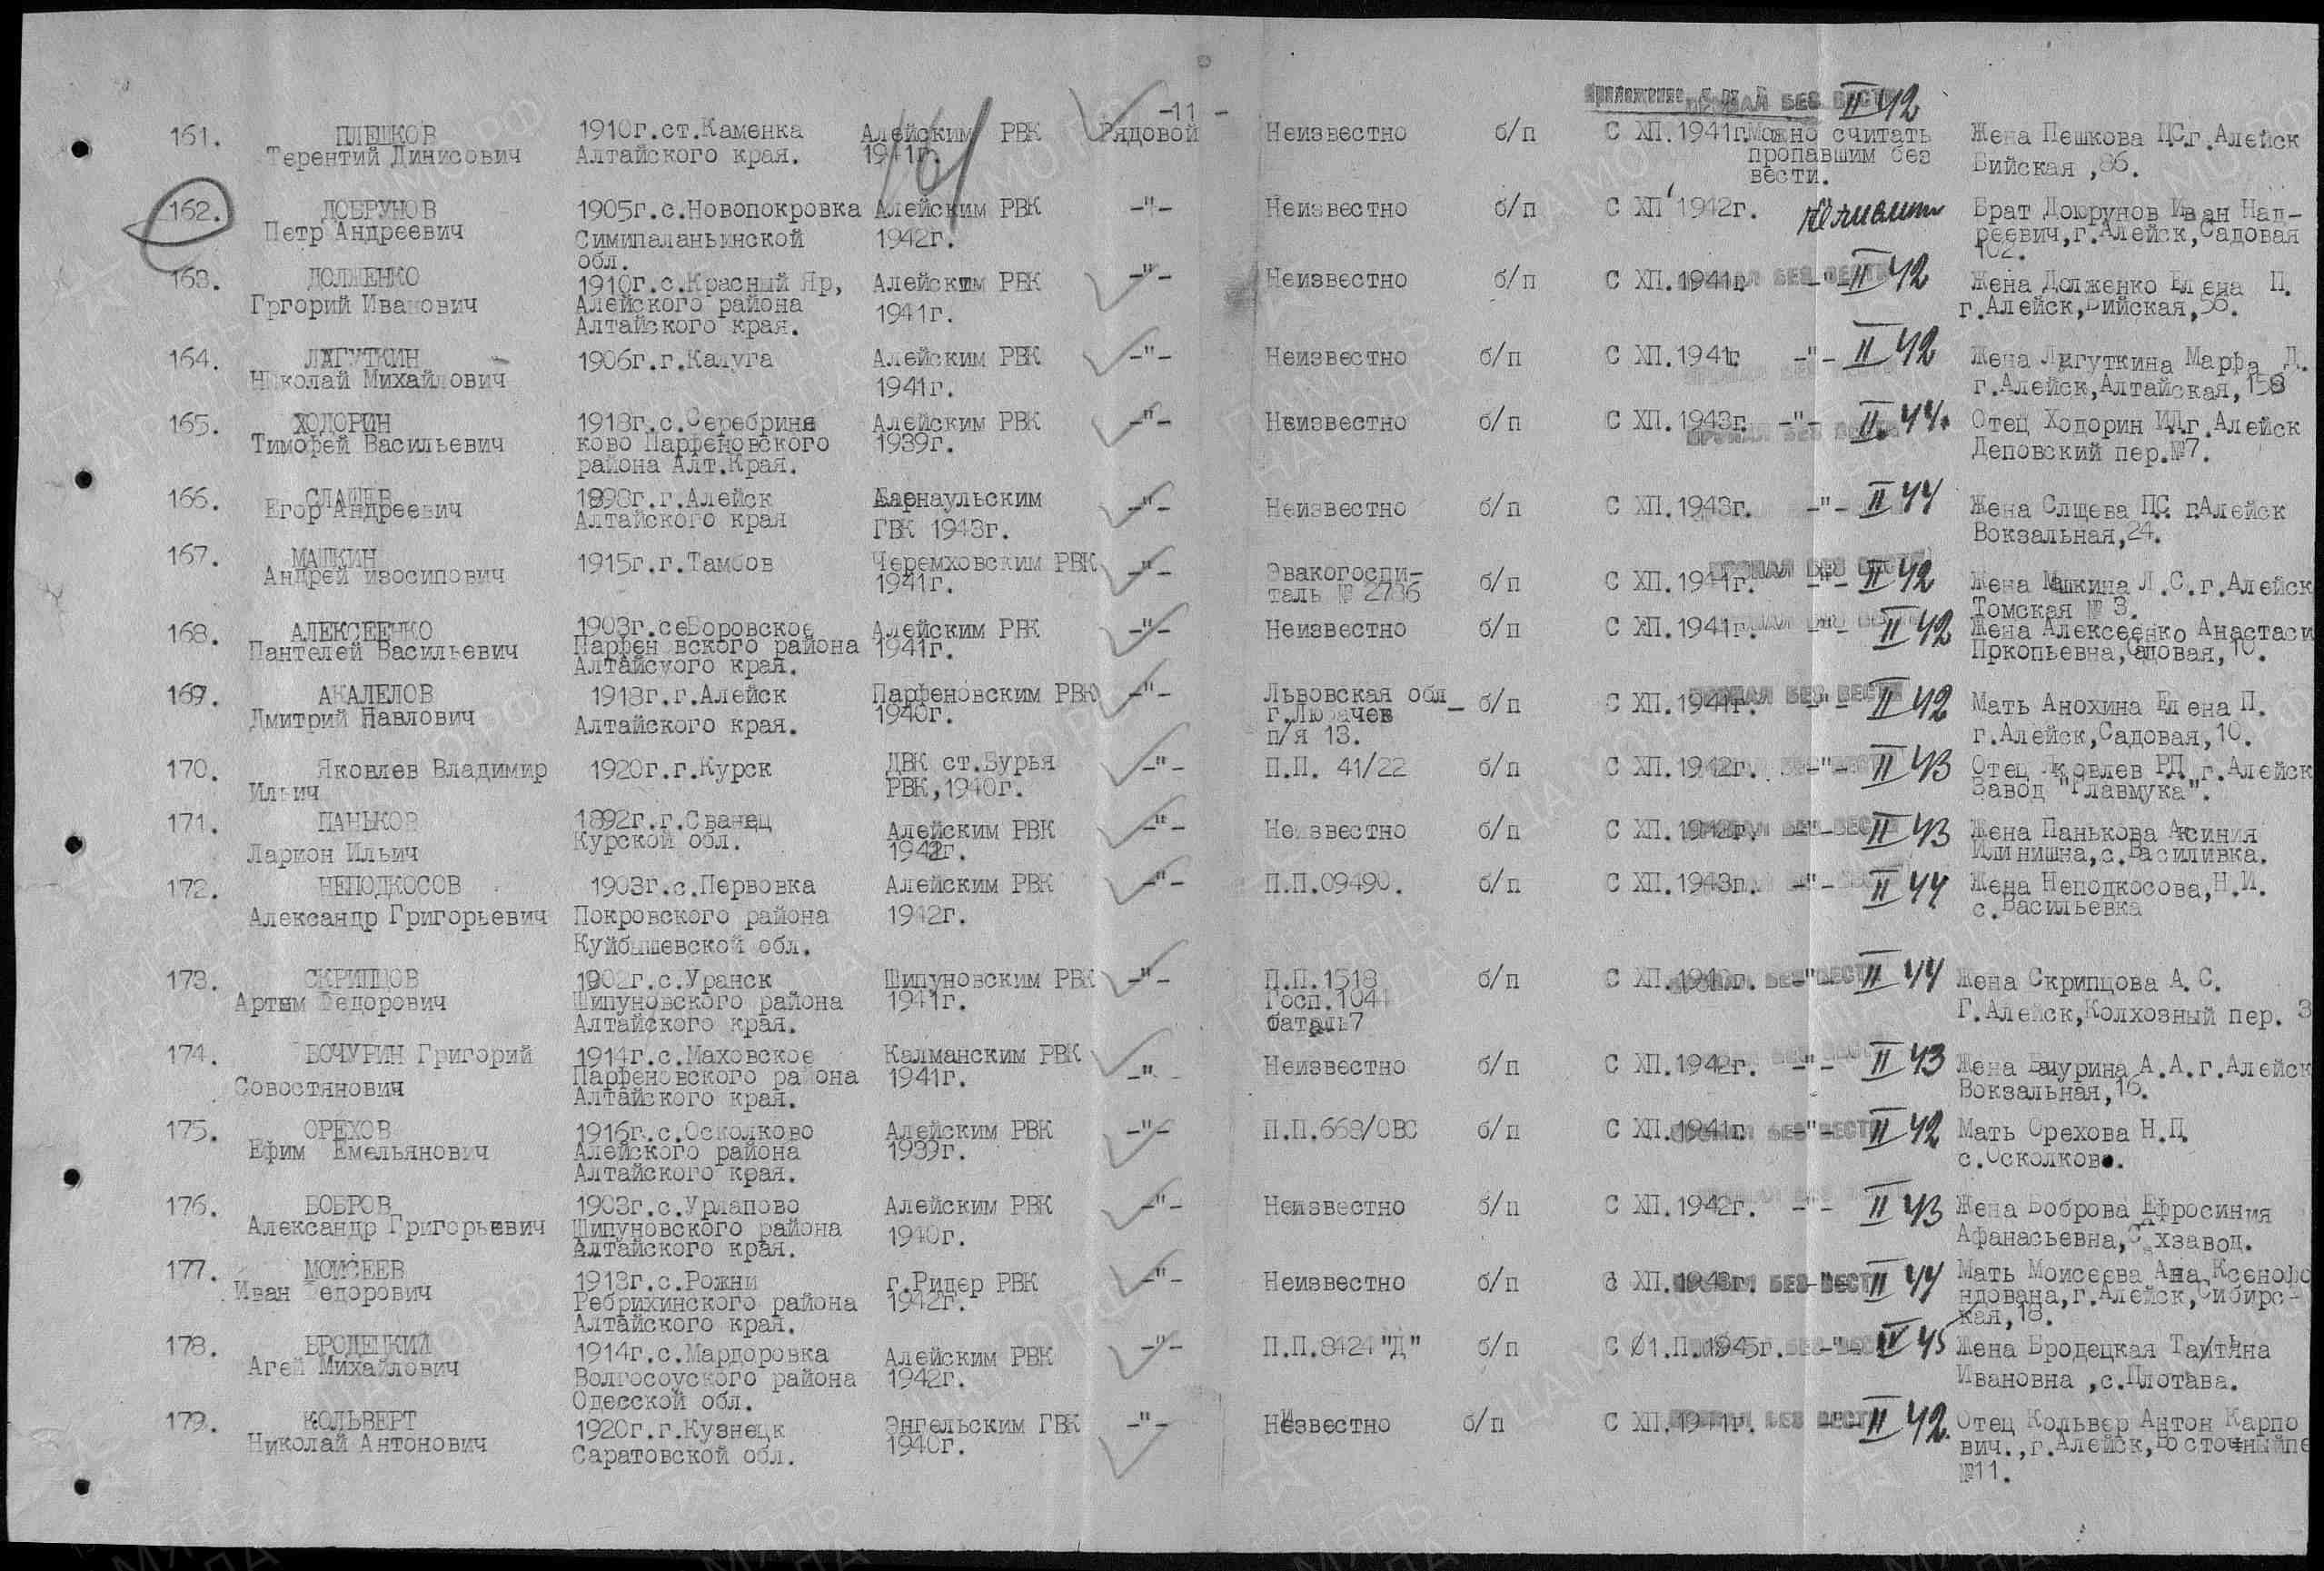 -11-
161. ПЛЕШКОВ 1910г.ст.Каменка Алейским РВК Рядовой Неизвестно б/п С ХП.1941г. Можно считать Жена Пешкова П.С.г.Алейск
Терентий Динисович Алтайского края. 1941г. пропавшим без Бийская ,86.
вести.
II 42
162. ДОБРУНОВ 1905г.с.Новопокровка Алейским РВК -"- Неизвестно б/п С ХП 1942г. Брат Доюрунов Иван Нап-
Петр Андреевич Симипаланьинской 1942г. реевич,г.Алейск,Садовая
обл. 102.
163. ДОЛЖЕНКО 1910г.с.Красный Яр, Алейским РВК -"- Неизвестно б/п С ХП.1941г. -"- II 42 Жена Долженко Елена П.
Гргорий Иванович Алейского района 1941г. г.Алейск,Бийская,56.
Алтайского края.
164. ЛАГУТКИН 1906г.г.Калуга Алейским РВК -"- Неизвестно б/п С ХП.1941г. -"- II 42 Жена Лагуткина Марфа Д.
Николай Михайлович 1941г. г.Алейск,Алтайская,158
165. ХОДОРИН 1918г.с.Серебриня Алейским РВК -"- Неизвестно б/п С ХП.1943г. -"- II.44. Отец Ходорин И.Д.г.Алейск
Тимофей Васильевич ково Парфеновского 1939г. Деповский пер.№7.
района Алт.Края.
166. СЛАЩЕВ 1898г.г.Алейск Барнаульским -"- Неизвестно б/п С ХП.1943г. -"- II 44 Жена Слщева П.С. г.Алейск
Егор Андреевич Алтайского края ГВК 1943г. Вокзальная,24.
167. МАШКИН 1915г.г.Тамбов Черемховским РВК -"- Эвакогоспи- б/п С ХП.1941г. -"- II 42 Жена Машкина Л.С.г.Алейск
Андрей изосипович 1941г. таль № 2786 Томская № 3.
168. АЛЕКСЕЕНКО 1903г.сеБоровское Алейским РВК -"- Неизвестно б/п С ХП.1941г. -"- II 42 Жена Алексеенко Анастаси
Пантелей Васильевич Парфеновского района 1941г. Пркопьевна,Садовая,10.
Алтайсуого края.
169. АКАЛЕЛОВ 1918г.г.Алейск Парфеновским РВК -"- Львовская обл б/п С ХП.1941г. -"- II 42 Мать Анохина Елена П.
Дмитрий Павлович Алтайского края. 1940г. г.Любачев г.Алейск,Садовая,10.
п/я 13.
170. Яковлев Владимир 1920г.г.Курск ДВК ст.Бурья -"- П.П. 41/22 б/п С ХП.1942г. -"- II 43 Отец Яковлев Р.П.г.Алейск
Ильич РВК,1940г. Завод "Главмука".
171. ПАНЬКОВ 1892г.г.Сванец Алейским РВК -"- Неизвестно б/п С ХП.1942г. -"- II 43 Жена Панькова Аксиния
Ларион Ильич Курской обл. 1942г. Илинишна,с.Василивка.
172. НЕПОДКОСОВ 1903г.с.Первовка Алейским РВК -"- П.П.09490. б/п С ХП.1943г. -"- II 44 Жена Неподкосова,Н.И.
Александр Григорьевич Покровского района 1942г. с.Васильевка
Куйбышевской обл.
173. СКРИПЦОВ 1902г.с.Уранск Шипуновским РВК -"- П.П.1518 б/п С ХП.1943г. -"- II 44 Жена Скрипцова А.С.
Артем Федорович Шипуновского района 1941г. Госп.1044 Г.Алейск,Колхозный пер. 3
Алтайского края. баталь7
174. БОЧУРИН Григорий 1914г.с.Маховское Калманским РВК -"- Неизвестно б/п С ХП.1942г. -"- II 43 Жена Бачурина А.А.г.Алейск
Совостянович Парфеновского района 1941г. Вокзальная,16.
Алтайского края.
175. ОРЕХОВ 1916г.с.Осколково Алейским РВК -"- П.П.668/ОВС б/п С ХП.1941г. -"- II 42 Мать Орехова Н.П.
Ефим Емельянович Алейского района 1939г. с.Осколково.
Алтайского края.
176. БОБРОВ 1903г.с.Урлапово Алейским РВК -"- Неизвестно б/п С ХП.1942г. -"- II 43 Жена Боброва Ефросиния
Александр Григорьевич Шипуновского района 1940г. Афанасьевна,Сахзавод.
Алтайского края.
177. МОИСЕЕВ 1918г.с.Рожни г.Ридер РВК -"- Неизвестно б/п С ХП.1943г. -"- II 44 Мать Моисеева Анна Ксенофо
Иван Федорович Ребрихинского района 1942г. ндована,г.Алейск,Сибирс-
Алтайского края. кая,18.
178. БРОДЕЦКИЙ 1914г.с.Мардоровка Алейским РВК -"- П.П.8424 "Д" б/п С 01.П.1945г. -"- IV 45 Жена Бродецкая Татьяна
Агей Михайлович Волгосоуского района 1942г. Ивановна ,с.Плотава.
Одесской обл.
179. КОЛЬВЕРТ 1920г.г.Кузнецк Энгельским ГВК -"- Неизвестно б/п С ХП.1941г. -"- II 42. Отец Кольвер Антон Карпо
Николай Антонович Саратовской обл. 1940г. вич.,г.Алейск,Восточныйпе
№11.